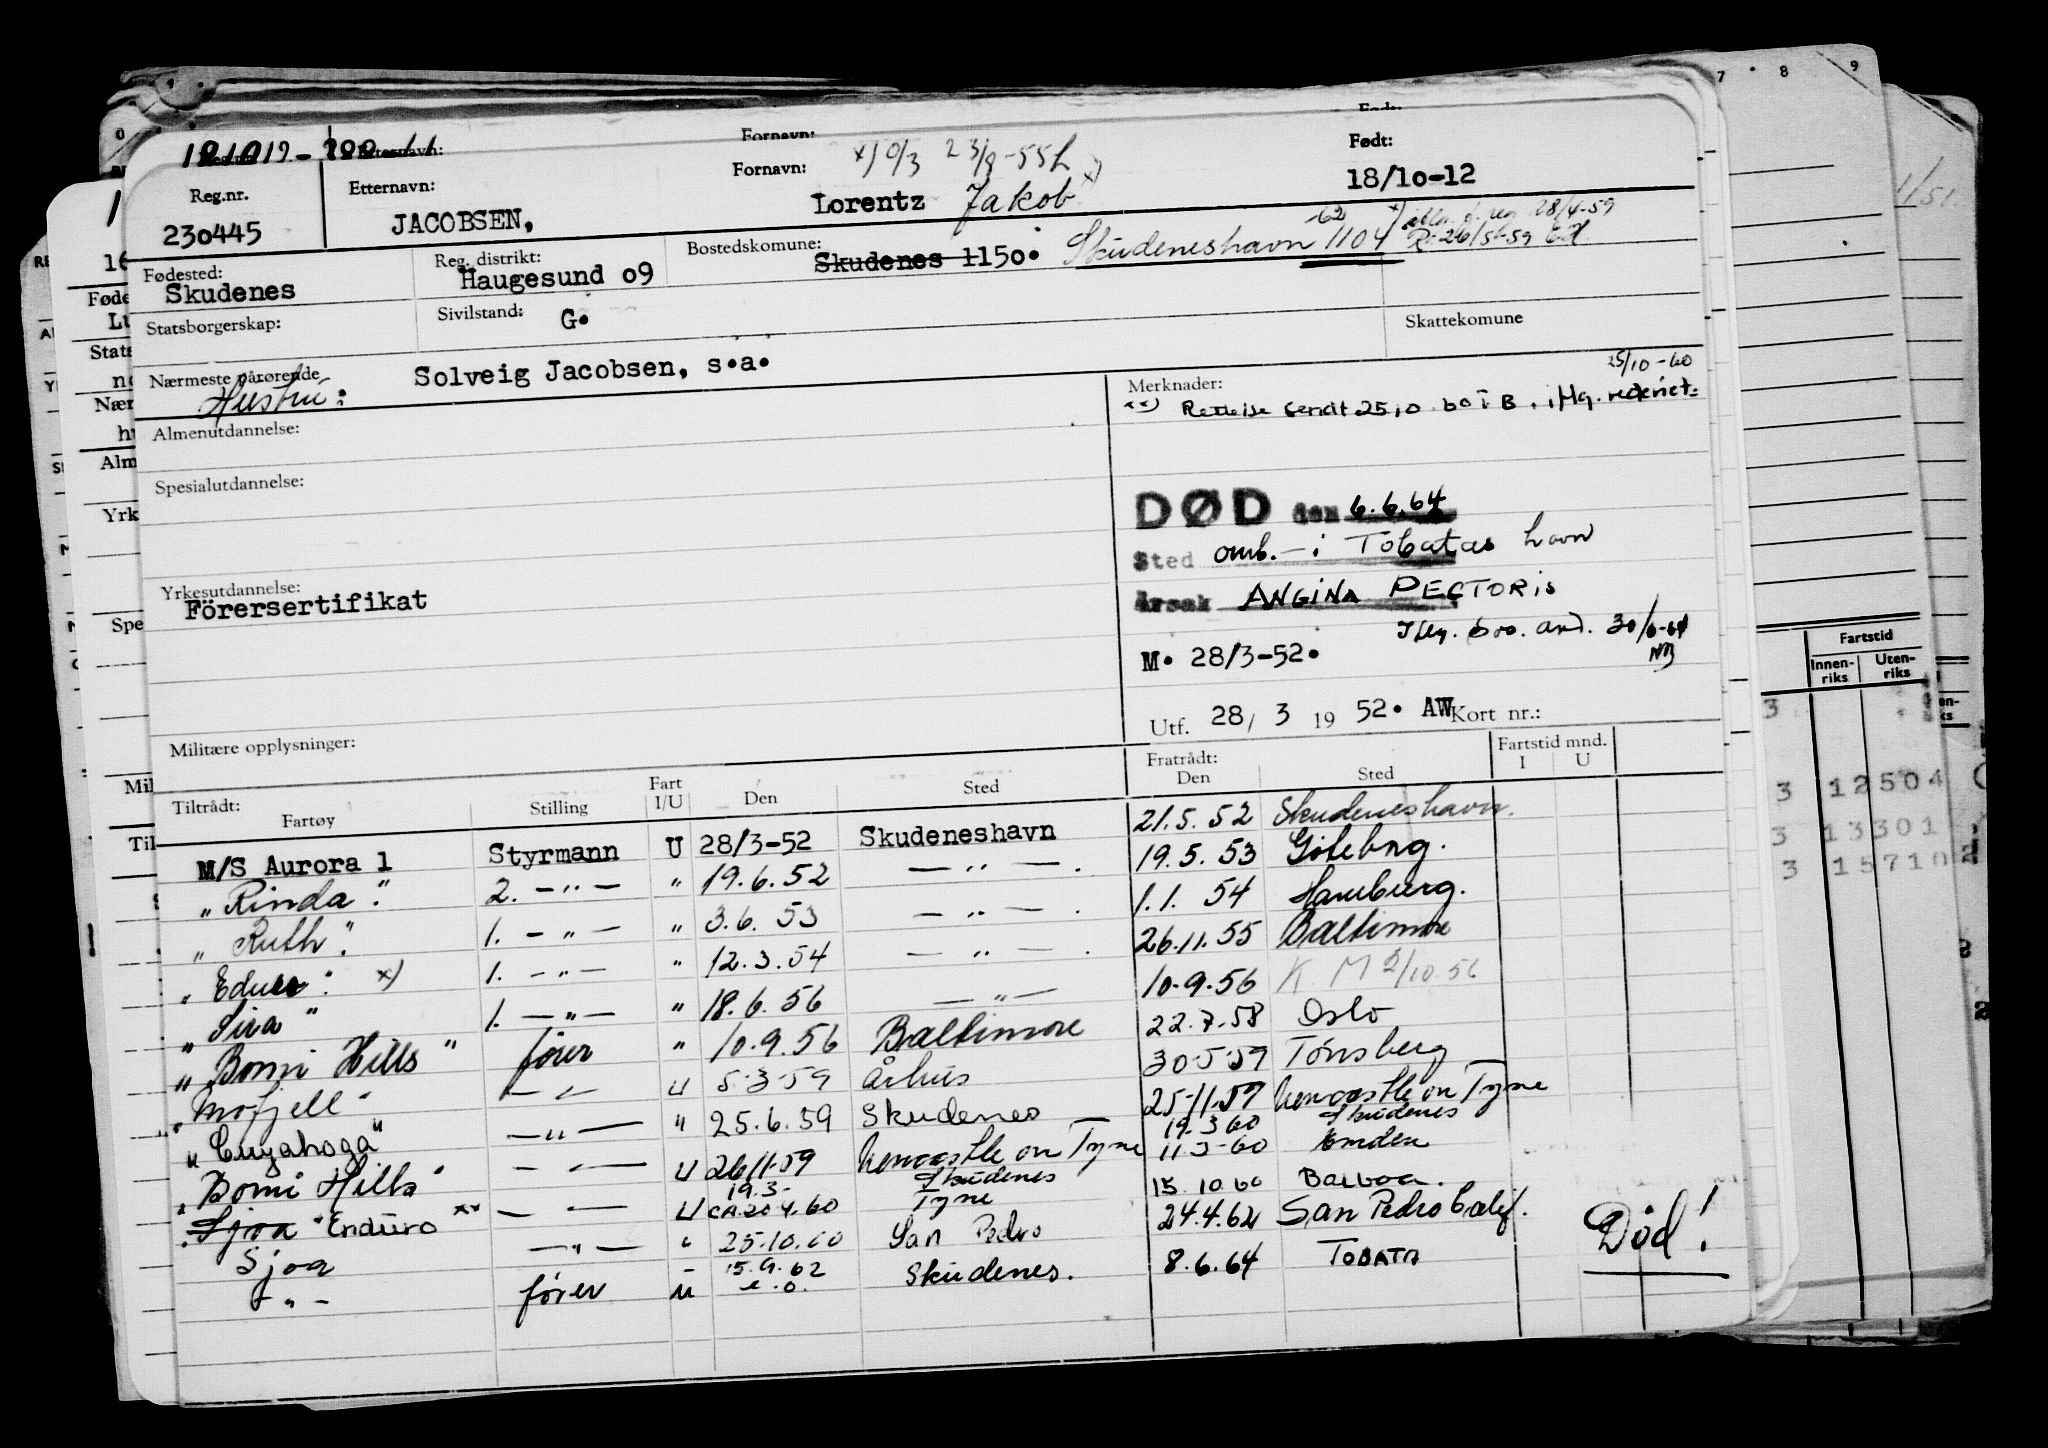 Reg.nr. Etternavn: Fornavn: Født:
230445 JACOBSEN, Lorentz Jakob x) 18/10-12
Fødested: Reg. distrikt: Bostedskomune:
Skudenes Haugesund 09 Skudenes 1150. Skudeneshavn 1104
-62
28/4-59
Statsborgerskap: Sivilstand: G. Skattekomune
Nærmeste pårørende Solveig Jacobsen, s.a.
Hustru:
Merknader: 25/10-60
Almenutdannelse:
Spesialutdannelse:
DØD den 6.6.64
Sted omb. - i Tobatas havn
Årsak ANGINA PECTORIS
Yrkesutdannelse:
Förersertifikat
M. 28/3-52.
Utf. 28/ 3 19 52. AW Kort nr.:
Militære opplysninger:
Tiltrådt: Fratrådt: Fartstid mnd.
Fartøy Stilling Fart I/U Den Sted Den Sted I U
M/S Aurora 1 Styrmann U 28/3-52 Skudeneshavn 21.5.52 Skudeneshavn.
" Rinda". 2. -"- " 19.6.52 -"-. 19.5.53 Göteborg.
" Ruth". 1. -"- " 3.6.53 -"-. 1.1.54 Hamburg.
" x) 1. -"- " 12.3.54 -"-. 26.11.55 Baltimore
" Sira" 1. -"- " 18.6.56 -"- 10.9.56 K M 2/10.56
" Bomi Hills" fører " 10.9.56 Baltimore 22.7.58 Oslo
" Mofjell" -"- U 5-3-59 Århus 30-5-59 Tønsberg
" Cuyahoga" -"- " 25.6.59 Skudenes 25-11-59 Newcastle on Tyne
19.3.60 Skudenes
" Bomi Hills" -"- U 26/11-59 Newcastle on Tyne 11-3-60 Emden
19.3- Skudenes
" Sjoa "Enduro xx -"- U CA.20.4.60 Tyne 15.10.60 Balboa.
Sjoa -"- " 25.10.60 San Pedro 24.4.62 San Pedro Calif.
-"- fører u 15.9.62 Skudenes. 8.6.64 TOBATA
Død!
Fartstid
Innenriks Utenriks
3 12504
3 13301
3 15710